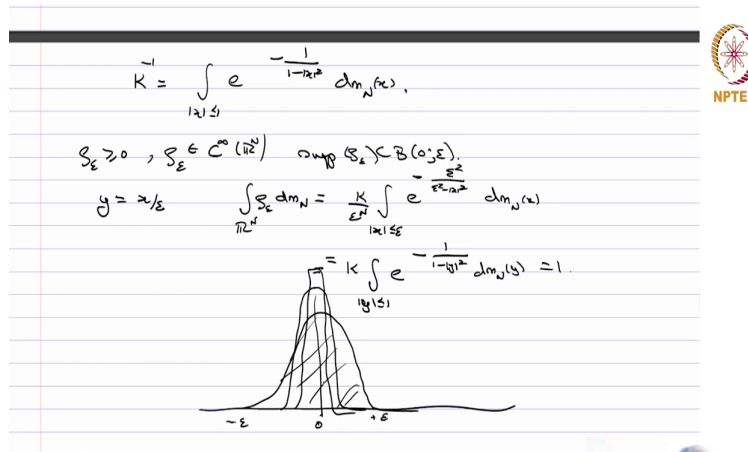 K⁻¹ = ∫_{|x|≤1} e^{-1/(1-|x|²)} dm_N(x).
NPTE
ρ_ε ≥ 0, ρ_ε ∈ C^∞(ℝ^N) supp(ρ_ε) ⊂ B(0;ε).
y = x/ε ∫_{ℝ^N} ρ_ε dm_N = K/ε^N ∫_{|x|≤ε} e^{-ε²/(ε²-|x|²)} dm_N(x)
= K ∫_{|y|≤1} e^{-1/(1-|y|²)} dm_N(y) = 1.
-ε 0 +ε